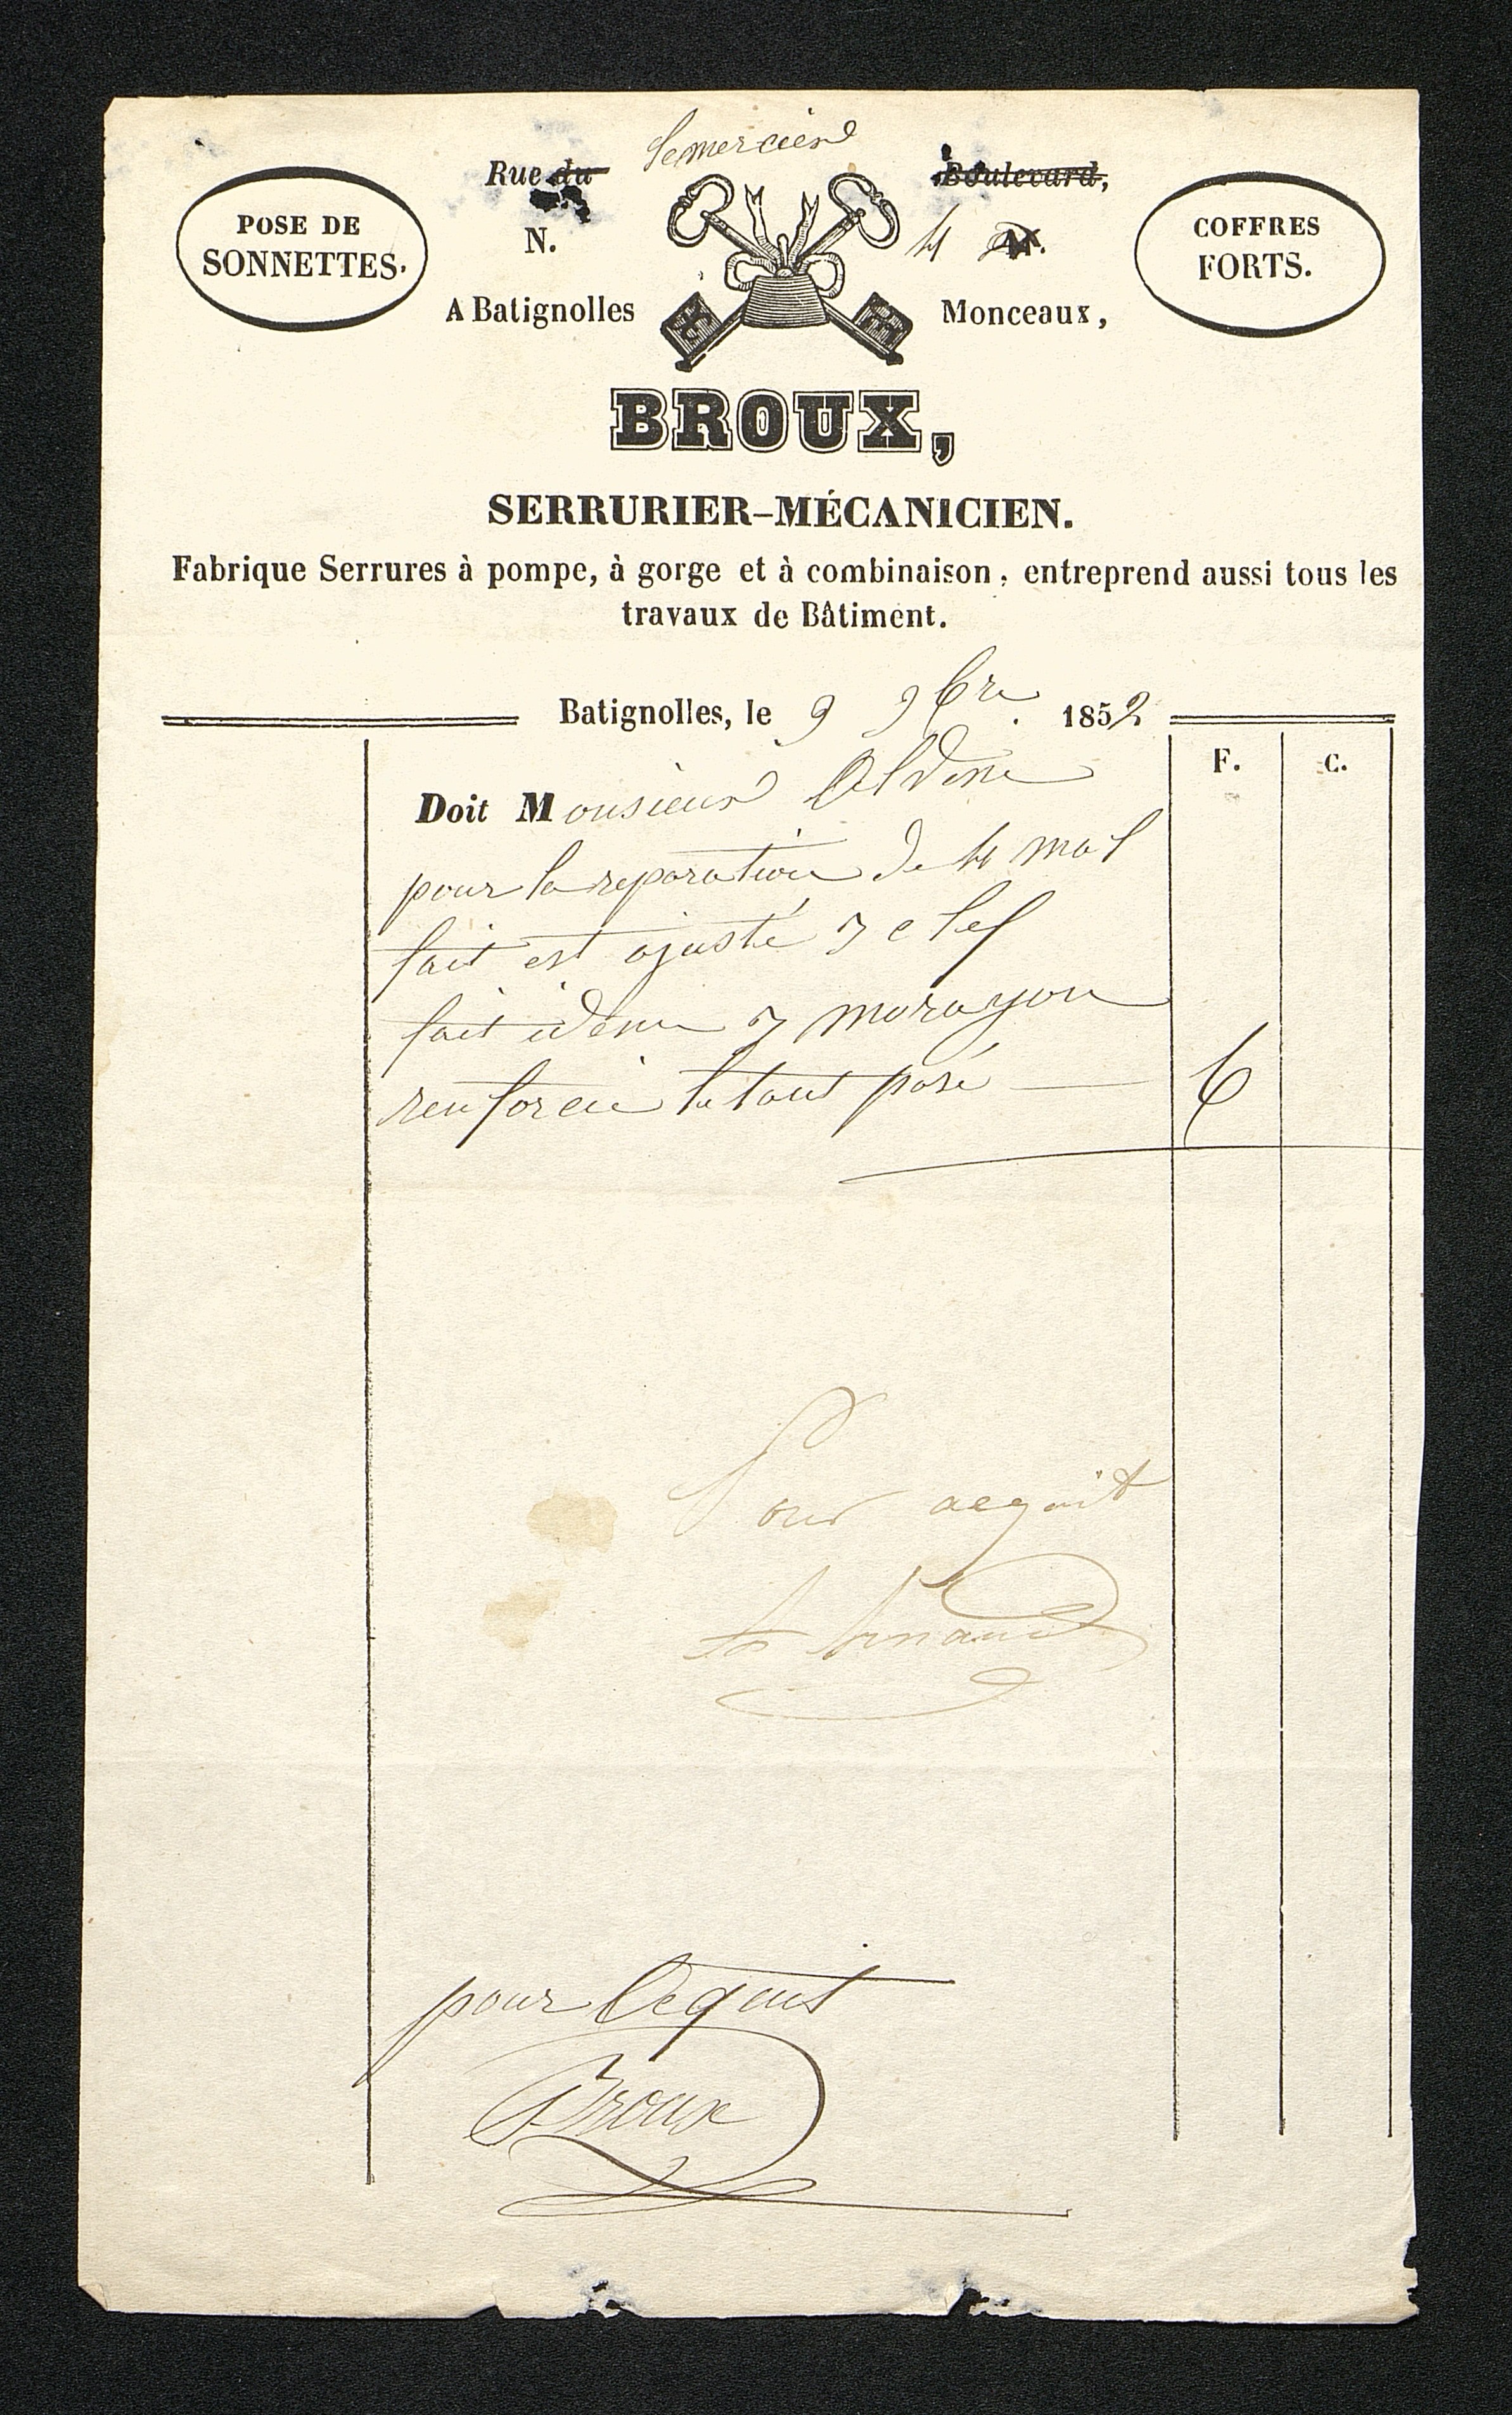 Lemercier
Rue du Boulevard,
POSE DE
SONNETTES.
COFFRES
FORTS.
N. 4
A Batignolles Monceaux,
BROUX,
SERRURIER-MÉCANICIEN.
Fabrique Serrures à pompe, à gorge et à combinaison, entreprend aussi tous les
travaux de Bâtiment.
Batignolles, le 9 9bre. 1852
F. C.
Doit Monsieur
pour la reparation de 4 mal
fait est ajusté 7 clef
fait idem 7 morayon
renforcie le tout posé 6
Pour acquit
pour Acquit
Broux